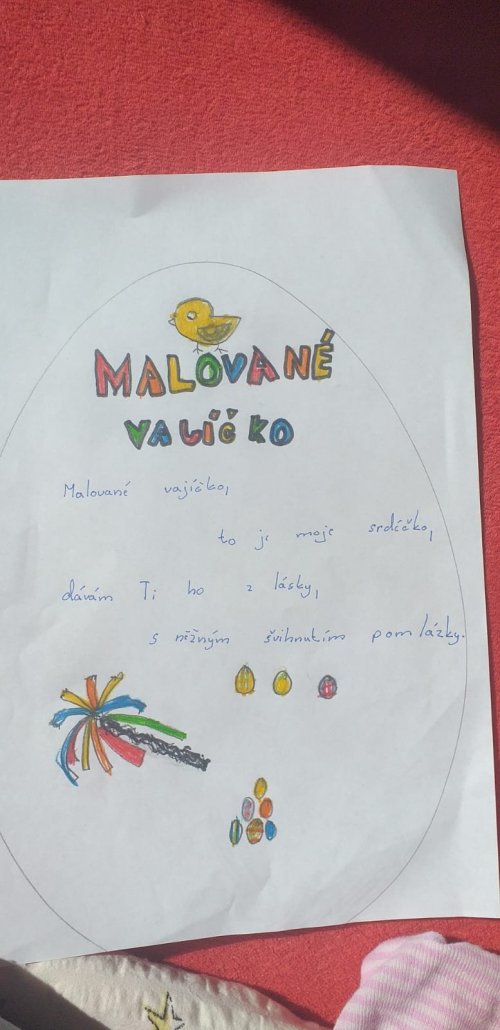 MALOVANÉ
VALÍČKO
Malované vajíčko,
to je moje srdíčko,
dávám Ti ho z lásky,
s něžným švihnutím pomlázky.